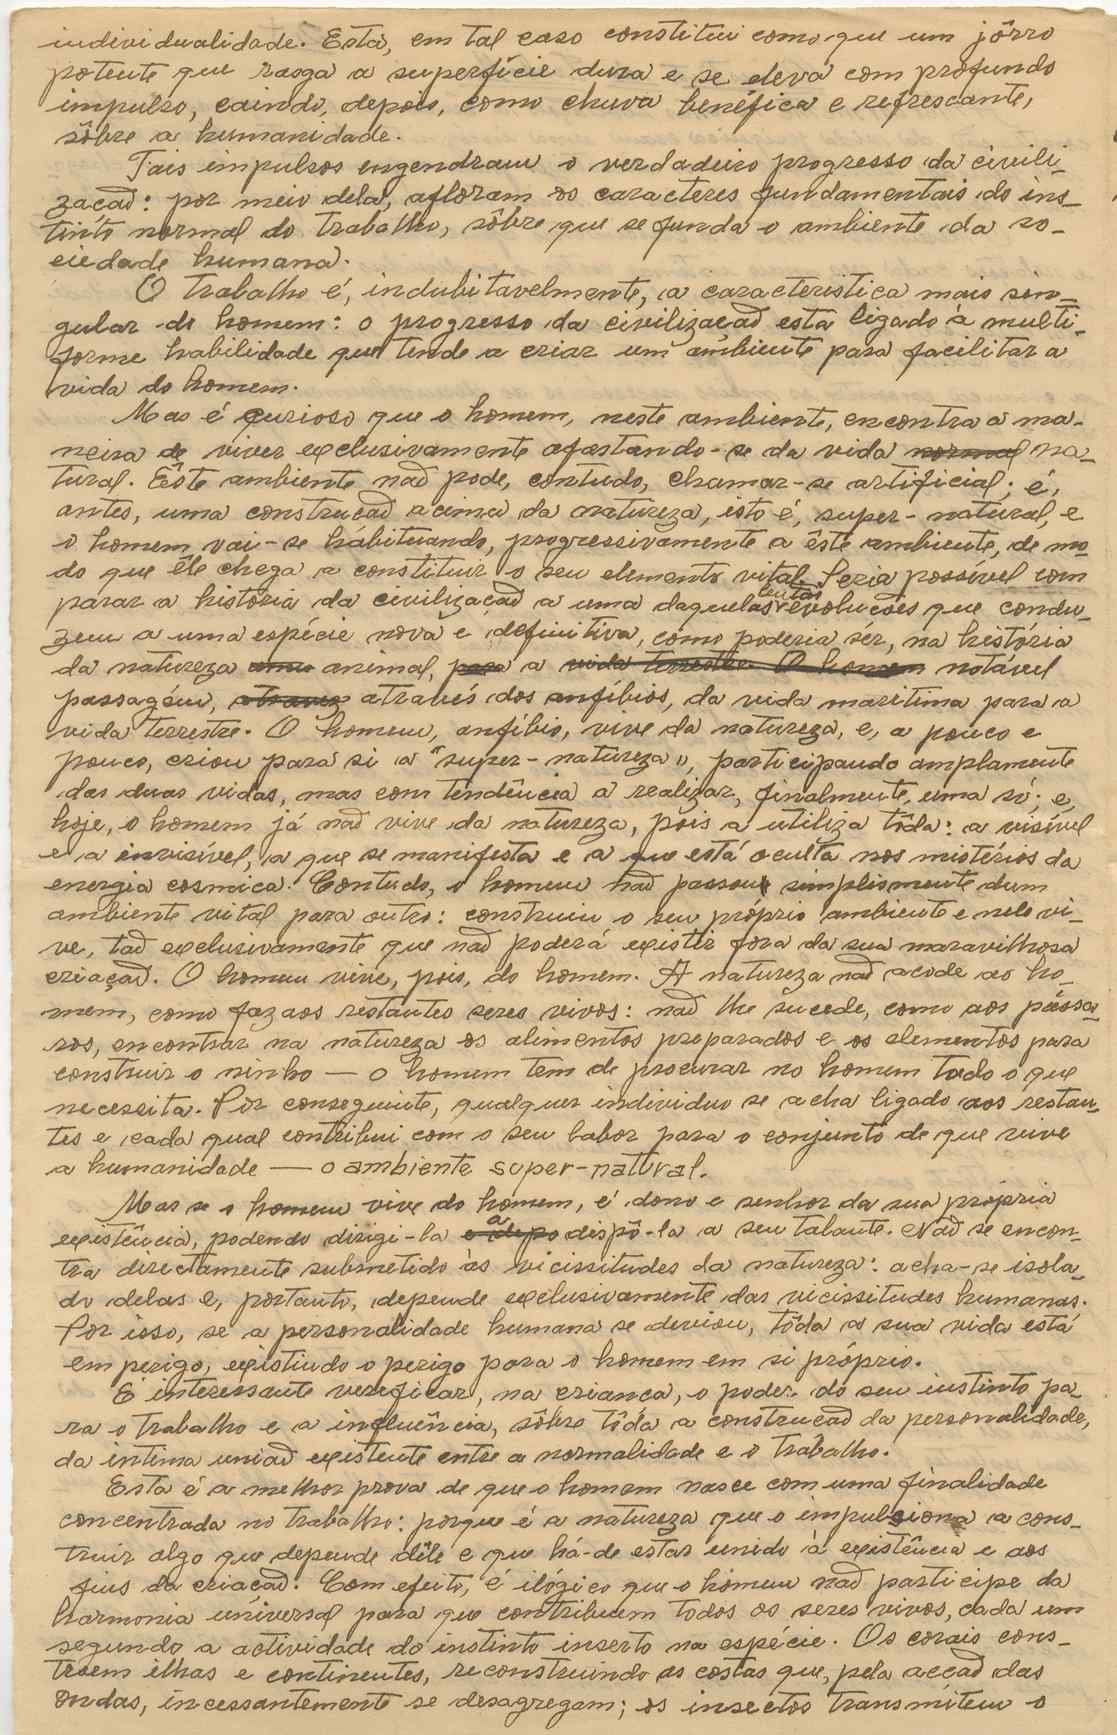 individualidade. Esta, em tal caso constitui como que um jôrro
potente que rasga a superfície dura e se eleva com profundo
impulso, caindo, depois, como chuva benéfica e refrescante,
sôbre a humanidade.
Tais impulsos engendram o verdadeiro progresso da civili-
zação: por meio dela, afloram os caracteres fundamentais do ins-
tinto normal do trabalho, sôbre que se funda o ambiente da so-
ciedade humana.
O trabalho é, indubitavelmente, a caracteristica mais sin-
gular do homem: o progresso da civilização está ligado à multi-
forme habilidade que tende a criar um ambiente para facilitar a
vida do homem.
Mas é curioso que o homem, neste ambiente, encontra a ma-
neira de viver exclusivamente afastando-se da vida normal na-
tural. Êste ambiente não pode, contudo, chamar-se artificial; é,
antes, uma construção acima da natureza, isto é, super-natural, e
o homem vai-se habituando, progressivamente a êste ambiente, de mo-
do que êle chega a constituir o seu elemento vital. Seria possível com
parar a história da civilização a uma daquelas lentas evoluções que condu-
zem a uma espécie nova e definitiva, como poderia sêr, na história
da natureza animal, para a vida terrestre. O homem notável
passagem, atravez através dos anfíbios, da vida maritima para a
vida terrestre. O homem, anfíbio, vive da natureza, e, a pouco e
pouco, criou para si a "super-natureza", participando amplamente
das duas vidas, mas com tendência a realizar, finalmente, uma só; e,
hoje, o homem já não vive da natureza, pois a utiliza tôda: a visível
e a invisível, a que se manifesta e a que está oculta nos mistérios da
energia cosmica. Contudo, o homem não passou simplesmente dum
ambiente vital para outro: construiu o seu próprio ambiente e nele vi-
ve, tão exclusivamente que não poderá existir fora da sua maravilhosa
criação. O homem vive, pois, do homem. A natureza não acode ao ho-
mem, como faz aos restantes seres vivos: não lhe sucede, como aos pássa-
ros, encontrar na natureza os alimentos preparados e os elementos para
construir o ninho — o homem tem de procurar no homem tudo o que
necessita. Por conseguinte, qualquer individuo se acha ligado aos restan-
tes e cada qual contribui com o seu labor para o conjunto de que vive
a humanidade — o ambiente super-natural.
Mas se o homem vive do homem, é dono e senhor da sua própria
existência, podendo dirigi-la e depo a dispô-la a seu talante. Não se encon-
tra directamente submetido às vicissitudes da natureza: acha-se isola-
do delas e, portanto, depende exclusivamente das vicissitudes humanas.
Por isso, se a personalidade humana se desviou, tôda a sua vida está
em perigo, existindo o perigo para o homem em si próprio.
É interessante verificar, na criança, o poder do seu instinto pa-
ra o trabalho e a influência, sôbre tôda a construção da personalidade,
da intima união existente entre a normalidade e o trabalho.
Esta é a melhor prova de que o homem nasce com uma finalidade
concentrada no trabalho: porque é a natureza que o impulsiona a cons-
truir algo que depende dêle e que há-de estar unido à existência e aos
fins da criação. Com efeito, é ilógico que o homem não participe da
harmonia universal para que contribuem todos os seres vivos, cada um
segundo a actividade do instinto inserto na espécie. Os corais cons-
troem ilhas e continentes, reconstruindo as costas que, pela acção das
ondas, incessantemente se desagregam; os insectos transmitem o